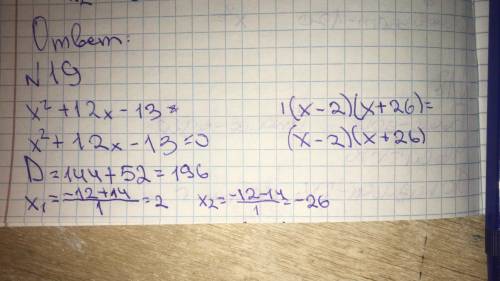 Ответ:
N19
x² + 12x - 13 =
x² + 12x - 13 = 0
D = 144 + 52 = 196
x₁ = \frac{-12+14}{1} = 2 x₂ = \frac{-12-14}{1} = -26
1(x-2)(x+26) =
(x-2)(x+26)